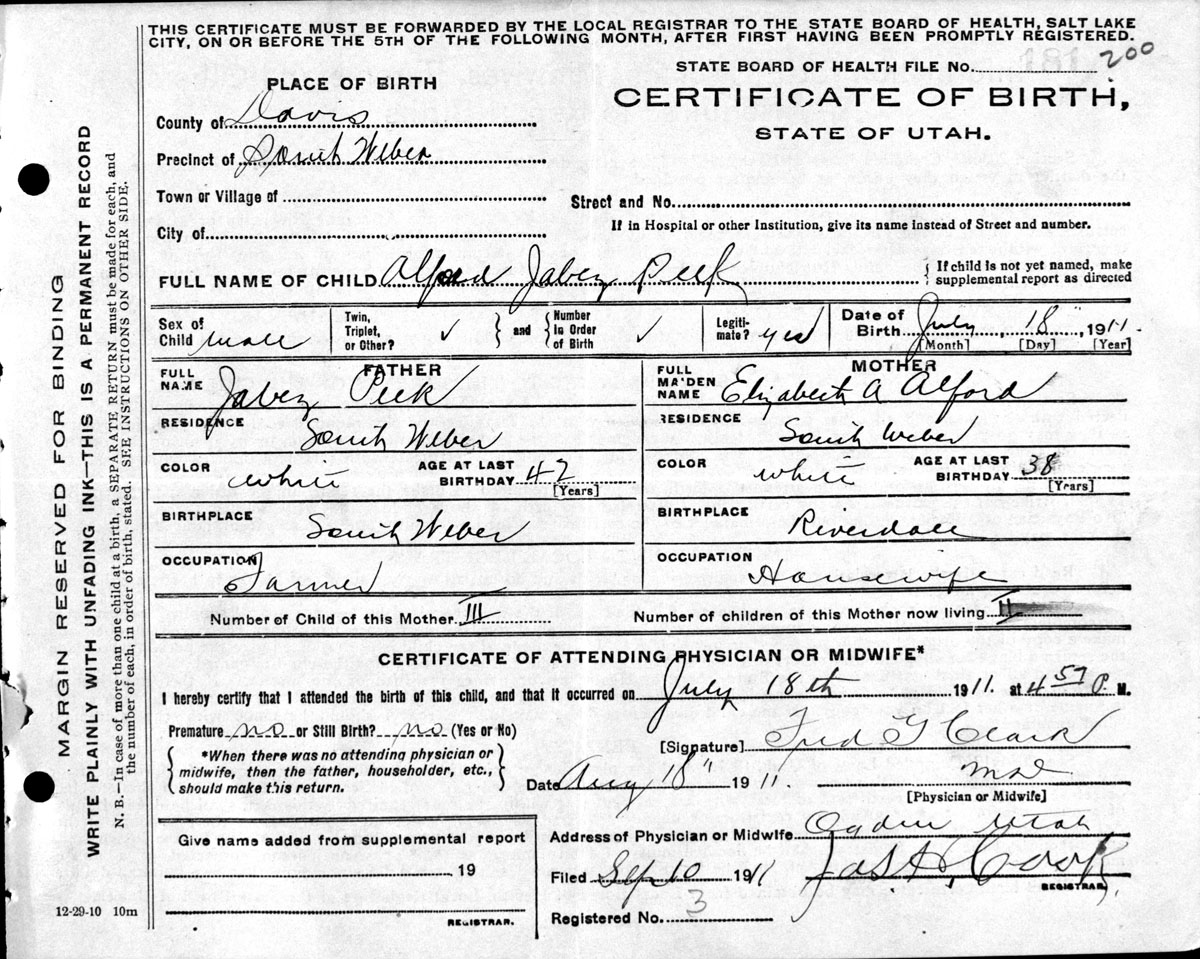 THIS CERTIFICATE MUST BE FORWARDED BY THE LOCAL REGISTRAR TO THE STATE BOARD OF HEALTH, SALT LAKE
CITY, ON OR BEFORE THE 5TH OF THE FOLLOWING MONTH, AFTER FIRST HAVING BEEN PROMPTLY REGISTERED.
STATE BOARD OF HEALTH FILE No. 200
CERTIFICATE OF BIRTH,
STATE OF UTAH.
PLACE OF BIRTH
County of Davis
Precinct of South Weber
Town or Village of
City of
Street and No.
If in Hospital or other Institution, give its name instead of Street and number.
FULL NAME OF CHILD Alford Jabez Peek
{ If child is not yet named, make
supplemental report as directed
Sex of
Child male
Twin,
Triplet,
or Other? ✓
} and {
Number
in Order
of Birth ✓
Legiti-
mate? yes
Date of
Birth July 18" 1911
[Month] [Day] [Year]
FATHER
FULL
NAME Jabez Peek
RESIDENCE South Weber
COLOR white
AGE AT LAST
BIRTHDAY 42
[Years]
BIRTHPLACE South Weber
OCCUPATION Farmer
MOTHER
FULL
MAIDEN
NAME Elizabeth A Alford
RESIDENCE South Weber
COLOR white
AGE AT LAST
BIRTHDAY 38
[Years]
BIRTHPLACE Riverdale
OCCUPATION Housewife
Number of Child of this Mother III
Number of children of this Mother now living II
CERTIFICATE OF ATTENDING PHYSICIAN OR MIDWIFE*
I hereby certify that I attended the birth of this child, and that it occurred on July 18th 1911. at 4 57 P. M.
Premature no or Still Birth? no (Yes or No)
{ *When there was no attending physician or
midwife, then the father, householder, etc.,
should make this return. }
[Signature] Fred G Clark
Date Aug 18" 1911. MD
[Physician or Midwife]
Address of Physician or Midwife Ogden Utah
Filed Sep 10 1911 Jas H. Cook
REGISTRAR.
Registered No. 3
Give name added from supplemental report
19
REGISTRAR.
12-29-10 10m
MARGIN RESERVED FOR BINDING
WRITE PLAINLY WITH UNFADING INK—THIS IS A PERMANENT RECORD
N. B.—In case of more than one child at a birth, a SEPARATE RETURN must be made for each, and
the number of each, in order of birth, stated. SEE INSTRUCTIONS ON OTHER SIDE.